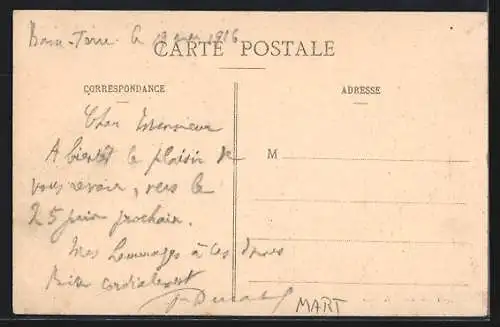 Basse-Terre le 19 mai 1916
CARTE POSTALE
CORRESPONDANCE
ADRESSE
Cher Monsieur
A bientôt le plaisir de
vous revoir, vers le
25 juin prochain.
Mes hommages à ces dames
Bien cordialement
M
MART